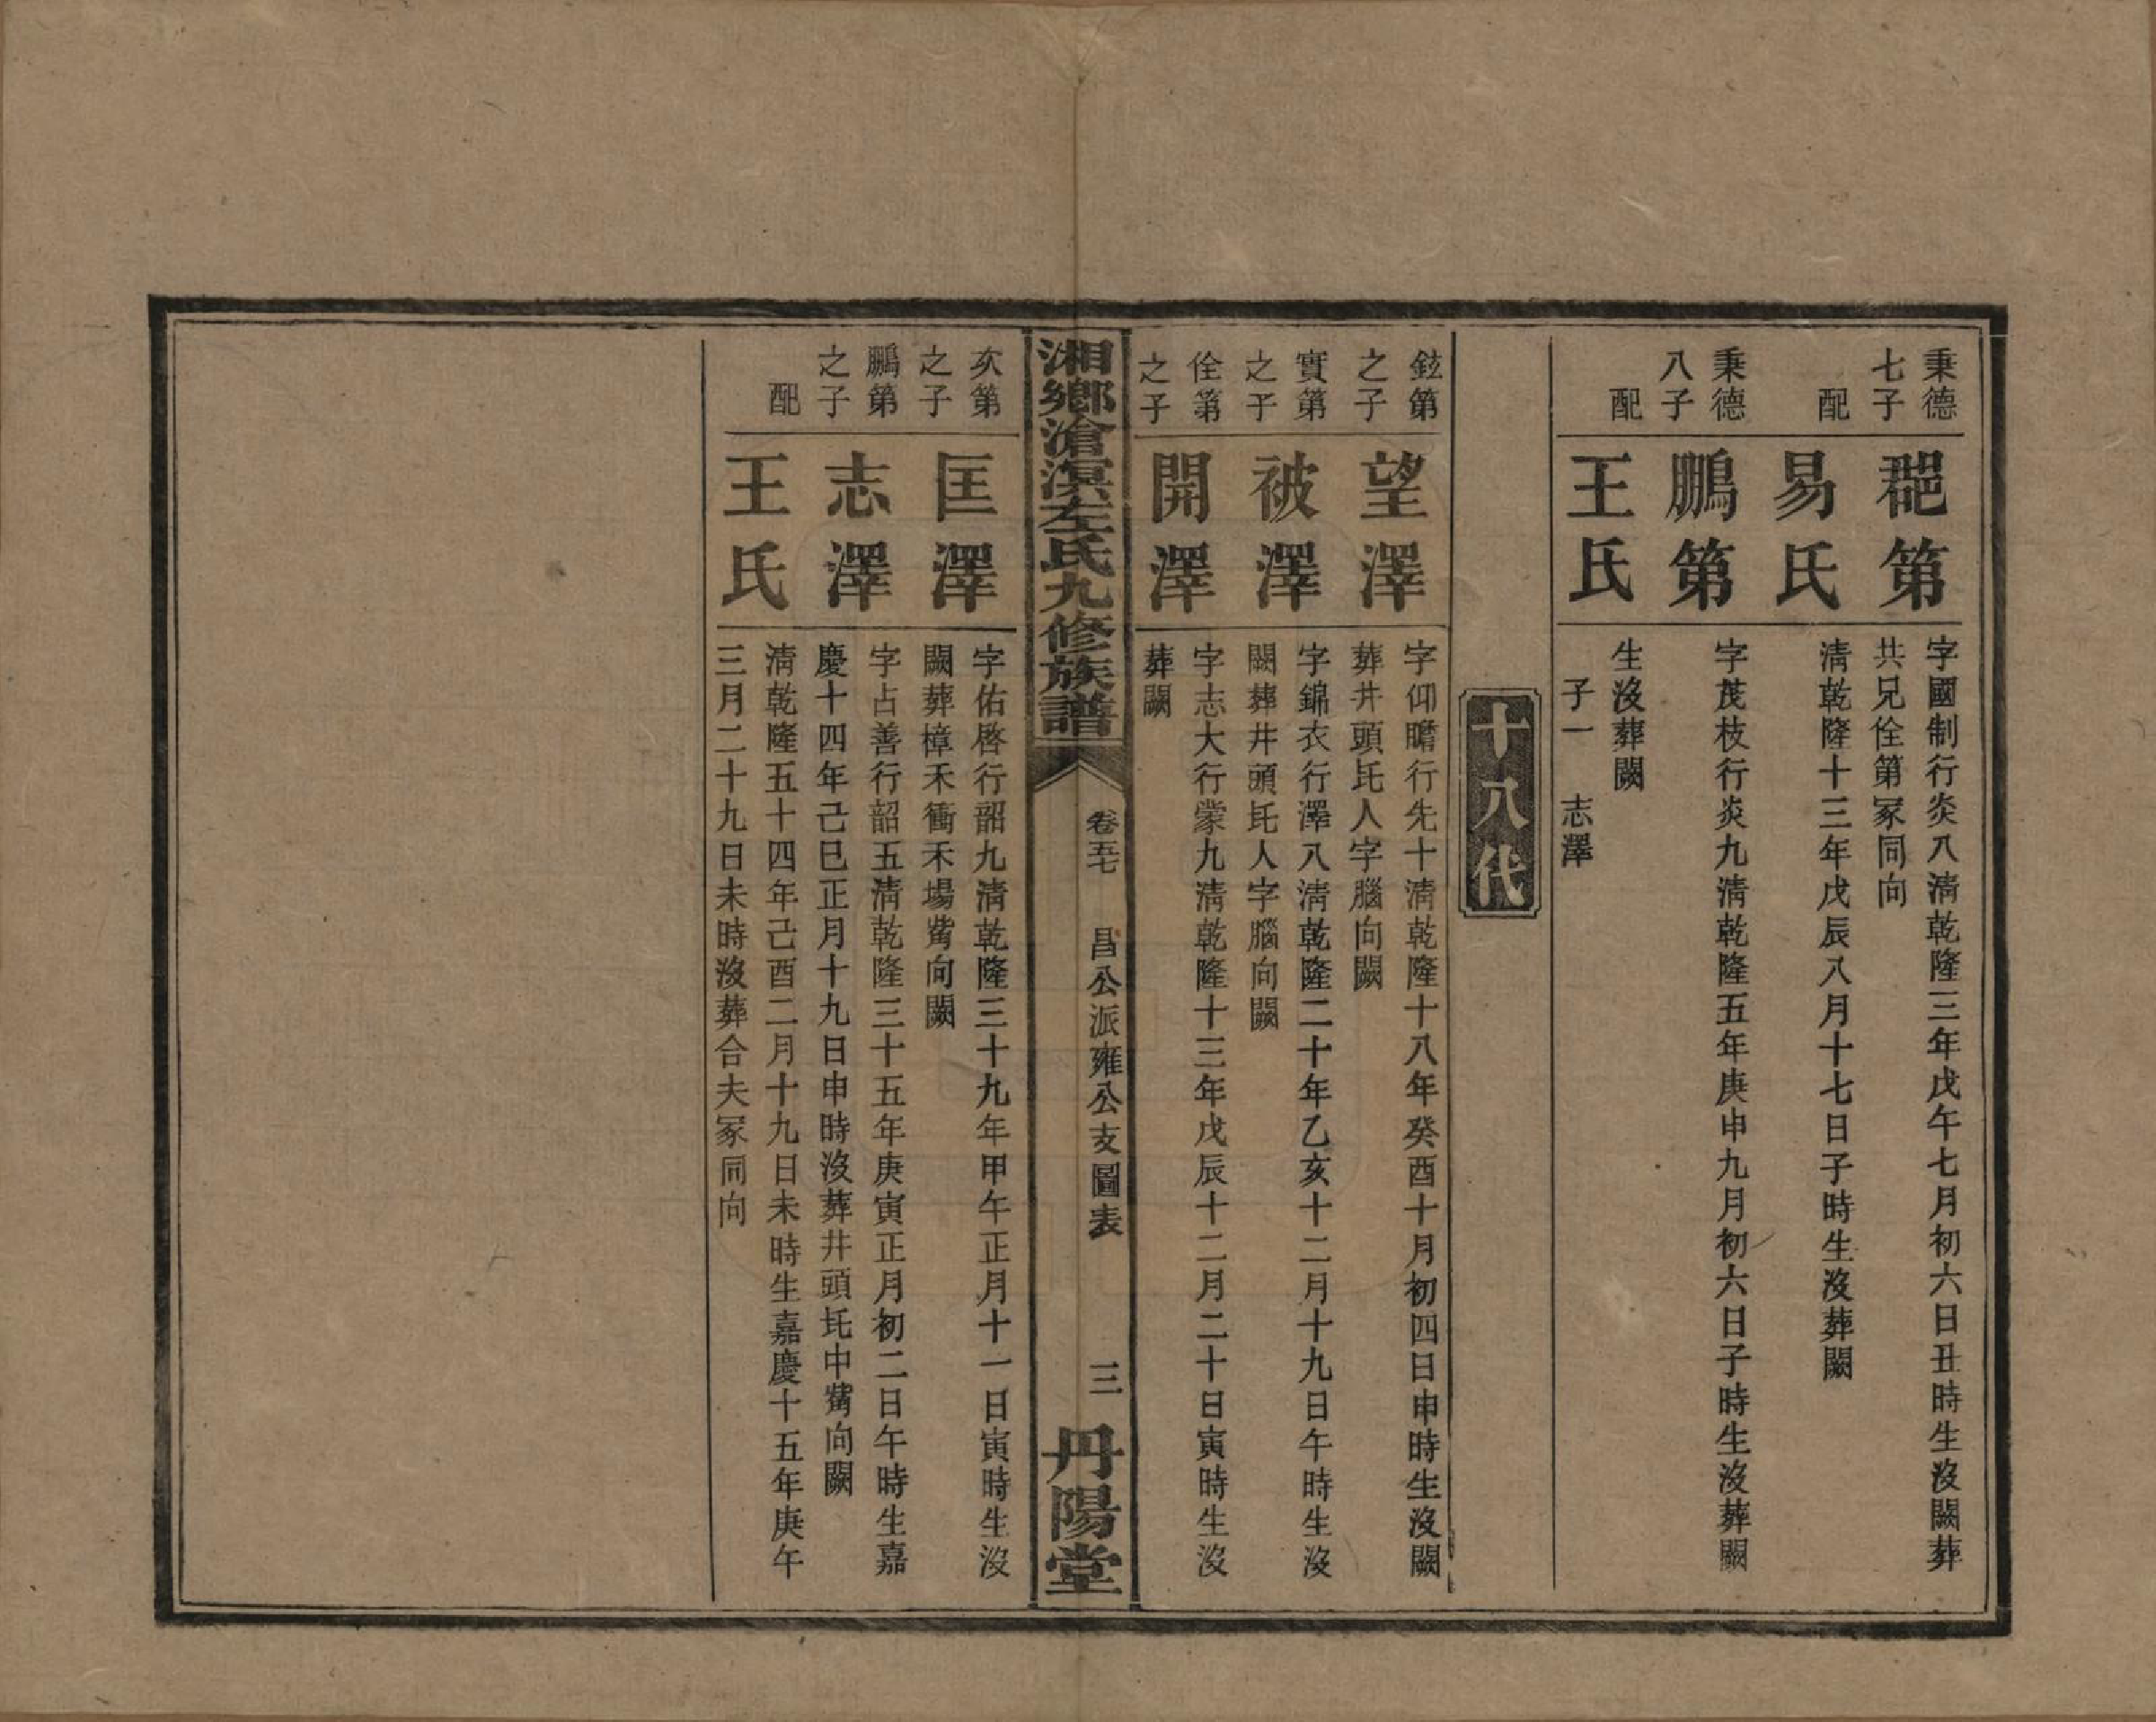 秉德
七子
郒第
字國制行炎八淸乾隆三年戊午七月初六日丑時生沒闕葬
共兄佺第冢同向
配
易氏
淸乾隆十三年戊辰八月十七日子時生沒葬闕
秉德
八子
鵬第
字茂枝行炎九淸乾隆五年庚申九月初六日子時生沒葬闕
配
王氏
生沒葬闕
子一 志澤
十八代
鉉第
之子
望澤
字仰瞻行先十淸乾隆十八年癸酉十月初四日申時生沒闕
葬井頭坉人字腦向闕
實第
之子
被澤
字錦衣行澤八淸乾隆二十年乙亥十二月十九日午時生沒
闕葬井頭坉人字腦向闕
佺第
之子
開澤
字志大行蒙九淸乾隆十三年戊辰十二月二十日寅時生沒
葬闕
湘鄉滄溟左氏九修族譜
卷五七
昌公派雍公支圖表
三
丹陽堂
亥第
之子
匡澤
字佑啓行韶九淸乾隆三十九年甲午正月十一日寅時生沒
闕葬樟禾衝禾場觜向闕
鵬第
之子
志澤
字占善行韶五淸乾隆三十五年庚寅正月初二日午時生嘉
慶十四年己巳正月十九日申時沒葬井頭坉中觜向闕
配
王氏
淸乾隆五十四年己酉二月十九日未時生嘉慶十五年庚午
三月二十九日未時沒葬合夫冢同向